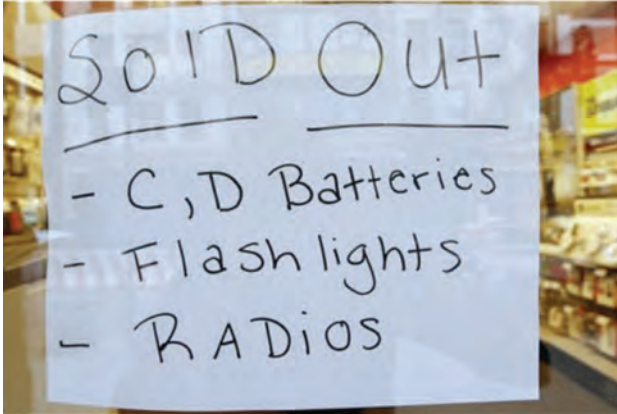 SolD Out
- C,D Batteries
- Flashlights
- RADiOS